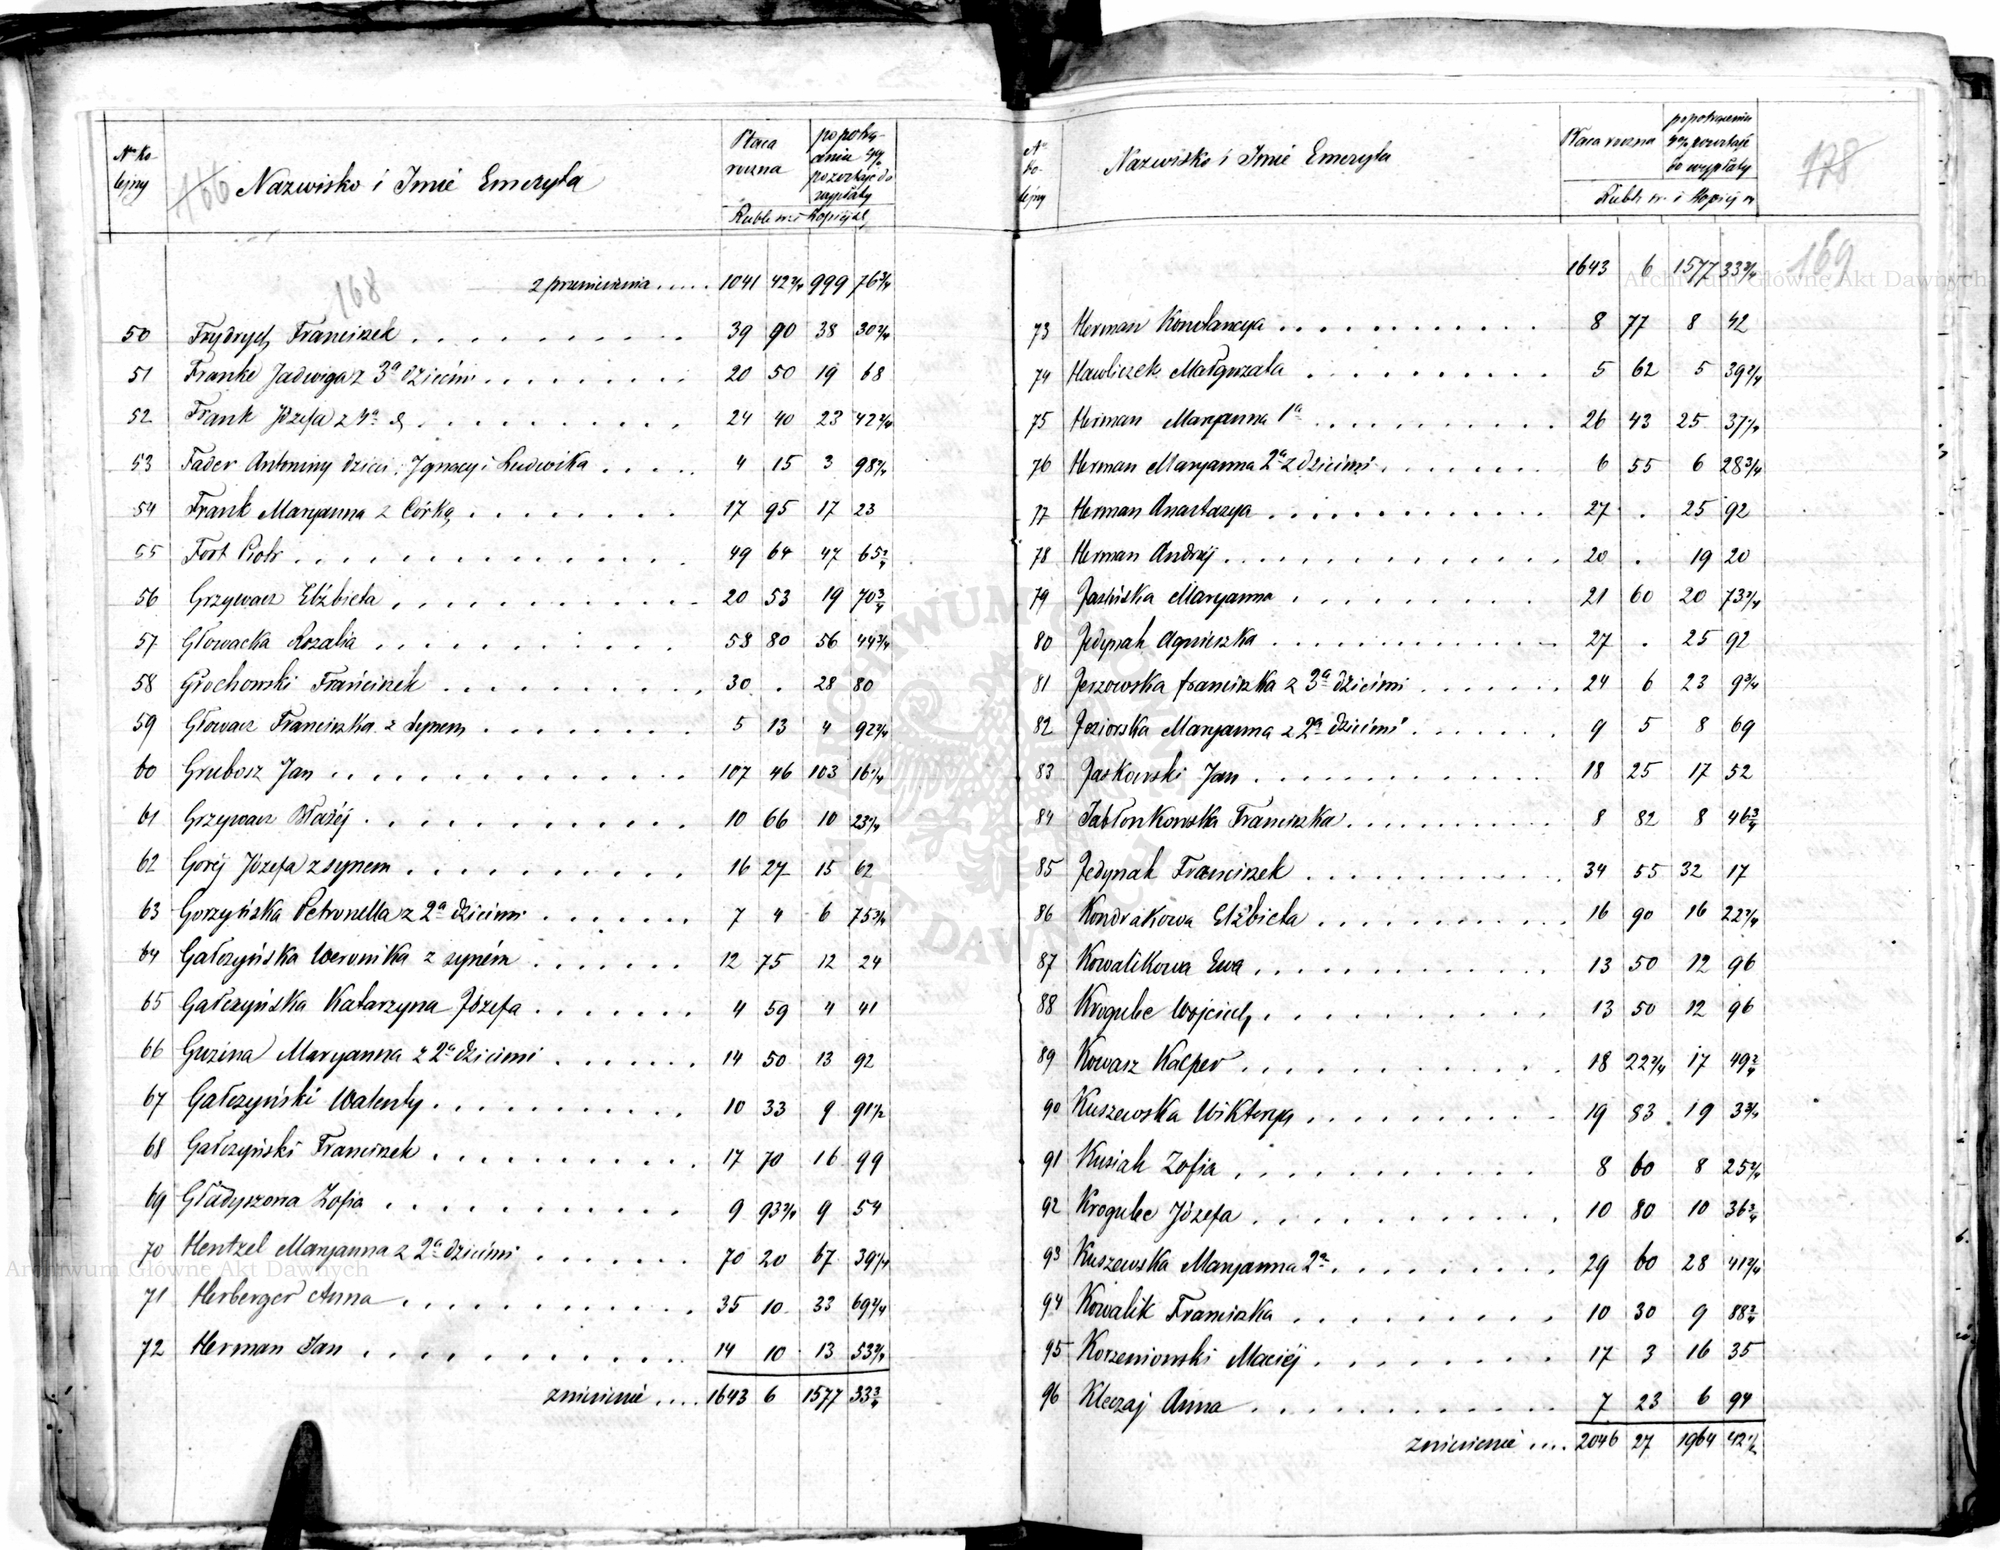 Nº Ko-
lejny
166
Nazwisko i Imie Emeryta
Płaca
roczna
po potrą-
ceniu 4%
pozostaje do
wypłaty
Rubli sr. i Kopiejek
168
z przeniesienia..... 1041 42 2/4 999 76 3/4
50 Frydrych Franciszek 39 90 38 30 2/4
51 Franke Jadwiga z 3ª dziećmi 20 50 19 68
52 Frank Józefa z 4ª d. 24 40 23 42 2/4
53 Fader Antoniny dzieci: Ignacy i Ludwika 4 15 3 98 2/4
54 Frank Maryanna z Córką 17 95 17 23
55 Fort Piotr 49 64 47 65 2/4
56 Grzywacz Elżbieta 20 53 19 70 3/4
57 Głowacka Rozalia 58 80 56 44 3/4
58 Grochowski Franciszek 30 . 28 80
59 Głowacz Franciszka z Synem 5 13 4 92 2/4
60 Grubosz Jan 107 46 103 16 1/4
61 Grzywacz Błażéj 10 66 10 23 1/4
62 Goréj Józefa z synem 16 27 15 62
63 Gorzyńska Petronella z 2ª dziećmi 7 4 6 75 3/4
64 Gałczyńska Weronika z syném 12 75 12 24
65 Gałczyńska Katarzyna Józefa 4 59 4 41
66 Guzina Maryanna z 2ª dziećmi 14 50 13 92
67 Gałczyński Walenty 10 33 9 91 1/2
68 Gałczyński Franciszek 17 70 16 99
69 Gładyszowa Zofia 9 93 3/4 9 54
70 Hentzel Maryanna z 2ª dziećmi 70 20 67 39 1/4
71 Herberger Anna 35 10 33 69 2/4
72 Herman Jan 14 10 13 53 2/4
zniesienie .... 1643 6 1577 33 3/4
Nº
ko-
lejny
Nazwisko i Imie Emeryta
Płaca roczna
po potrąceniu
4% pozostaje
do wypłaty
Rubli sr. i Kopiej.
178
169
1643 6 1577 33 3/4
73 Herman Konstancya 8 77 8 42
74 Hawliczek Małgorzata 5 62 5 39 2/4
75 Herman Maryanna 1ª 26 43 25 37 1/4
76 Herman Maryanna 2ª z dziećmi 6 55 6 28 3/4
77 Herman Anastazya 27 . 25 92
78 Herman Andrzéj 20 . 19 20
79 Jasińska Maryanna 21 60 20 73 2/4
80 Jedynak Agnieszka 27 . 25 92
81 Jerzowska Franciszka z 3ª dziećmi 24 6 23 9 3/4
82 Jeziorska Maryanna z 2ª dziećmi 9 5 8 69
83 Jaskowski Jan 18 25 17 52
84 Jabłonkowska Franciszka 8 82 8 46 3/4
85 Jedynak Franciszek 34 55 32 17
86 Kondrakowa Elżbieta 16 90 16 22 2/4
87 Kowalikowa Ewa 13 50 12 96
88 Krogulec Wojciech 13 50 12 96
89 Kowasz Kacper 18 22 2/4 17 49 2/4
90 Kuszewska Wiktorya 19 83 19 3 3/4
91 Kusiak Zofia 8 60 8 25 2/4
92 Krogulec Józefa 10 80 10 36 3/4
93 Kuszewska Maryanna 2ª 29 60 28 41 2/4
94 Kowalik Franciszka 10 30 9 88 3/4
95 Korzeniowski Maciéj 17 3 16 35
96 Kleczaj Anna 7 23 6 94
zniesienie .... 2046 27 1964 42 1/2
Archiwum Główne Akt Dawnych
Archiwum Główne Akt Dawnych
ARCHIWUM GŁÓWNE AKT DAWNYCH